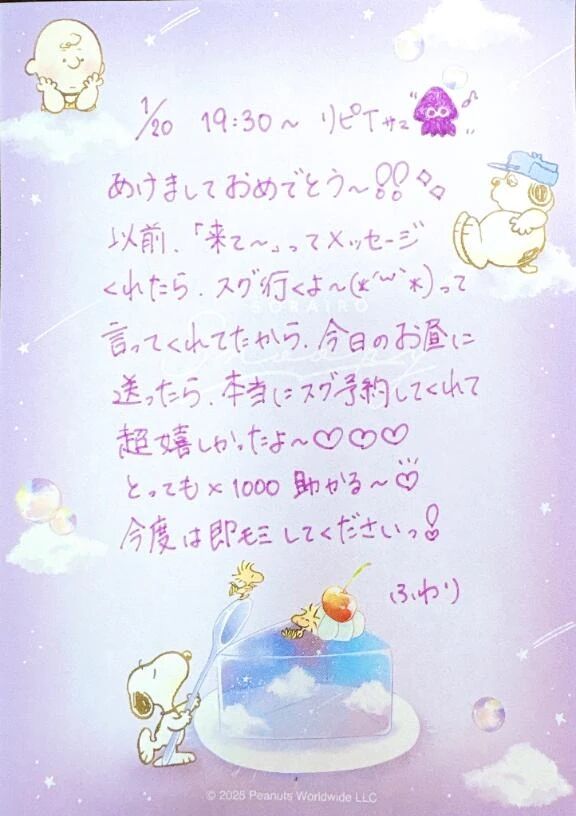 1/20 19:30〜 リピTサマ
あけましておめでとう〜!!
以前、「来て〜」ってメッセージ
くれたら、スグ行くよ〜(*´ω`*)って
SORAIRO
Snoopy
言ってくれてたから、今日のお昼に
送ったら、本当にスグ予約してくれて
超嬉しかったよ〜♡♡♡
とっても×1000 助かる〜♡
今度は即モミしてくださいっ!
ふわり
© 2025 Peanuts Worldwide LLC